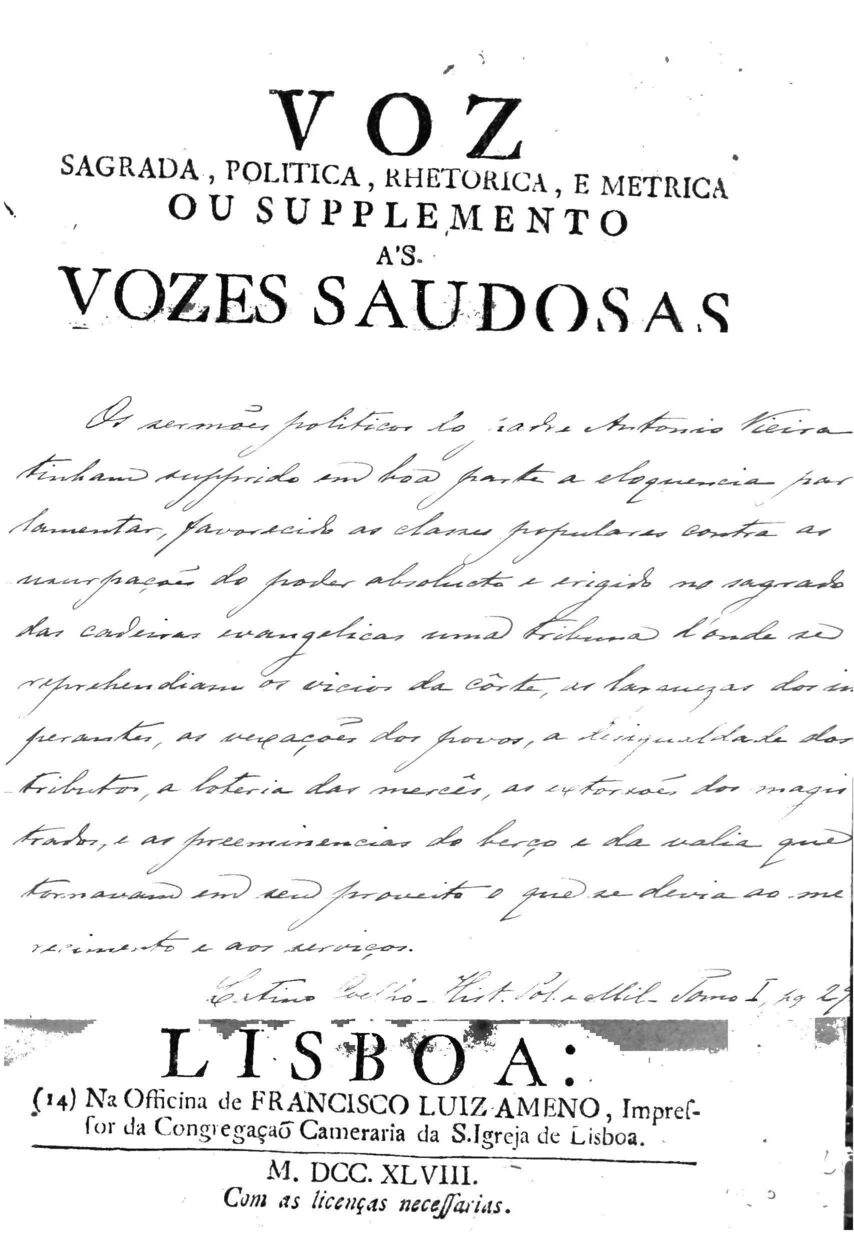 VOZ
SAGRADA, POLITICA, RHETORICA, E METRICA
OU SUPPLEMENTO
A'S
VOZES SAUDOSAS
Os sermões politicos do padre Antonio Vieira
tinham supprido em boa parte a eloquencia par
lamentar, favorecido as classes populares contra as
usurpações do poder absolucto e erigido no sagrado
das cadeiras evangelicas uma tribuna d'onde se
reprehendiam os vicios da côrte, as larguezas dos im
perantes, as vexações dos povos, a desigualdade dos
tributos, a loteria das mercês, as extorsões dos magis
trados, e as preeminencias do berço e da valia que
tornavam em seu proveito o que se devia ao me
recimento e aos serviços.
Latino Coelho - Hist. Pol. e Mil - Tomo I, pg 29
LISBOA:
(14) Na Officina de FRANCISCO LUIZ AMENO, Impreſ-
ſor da Congregaçaõ Cameraria da S. Igreja de Lisboa.
M. DCC. XLVIII.
Com as licenças neceſſarias.